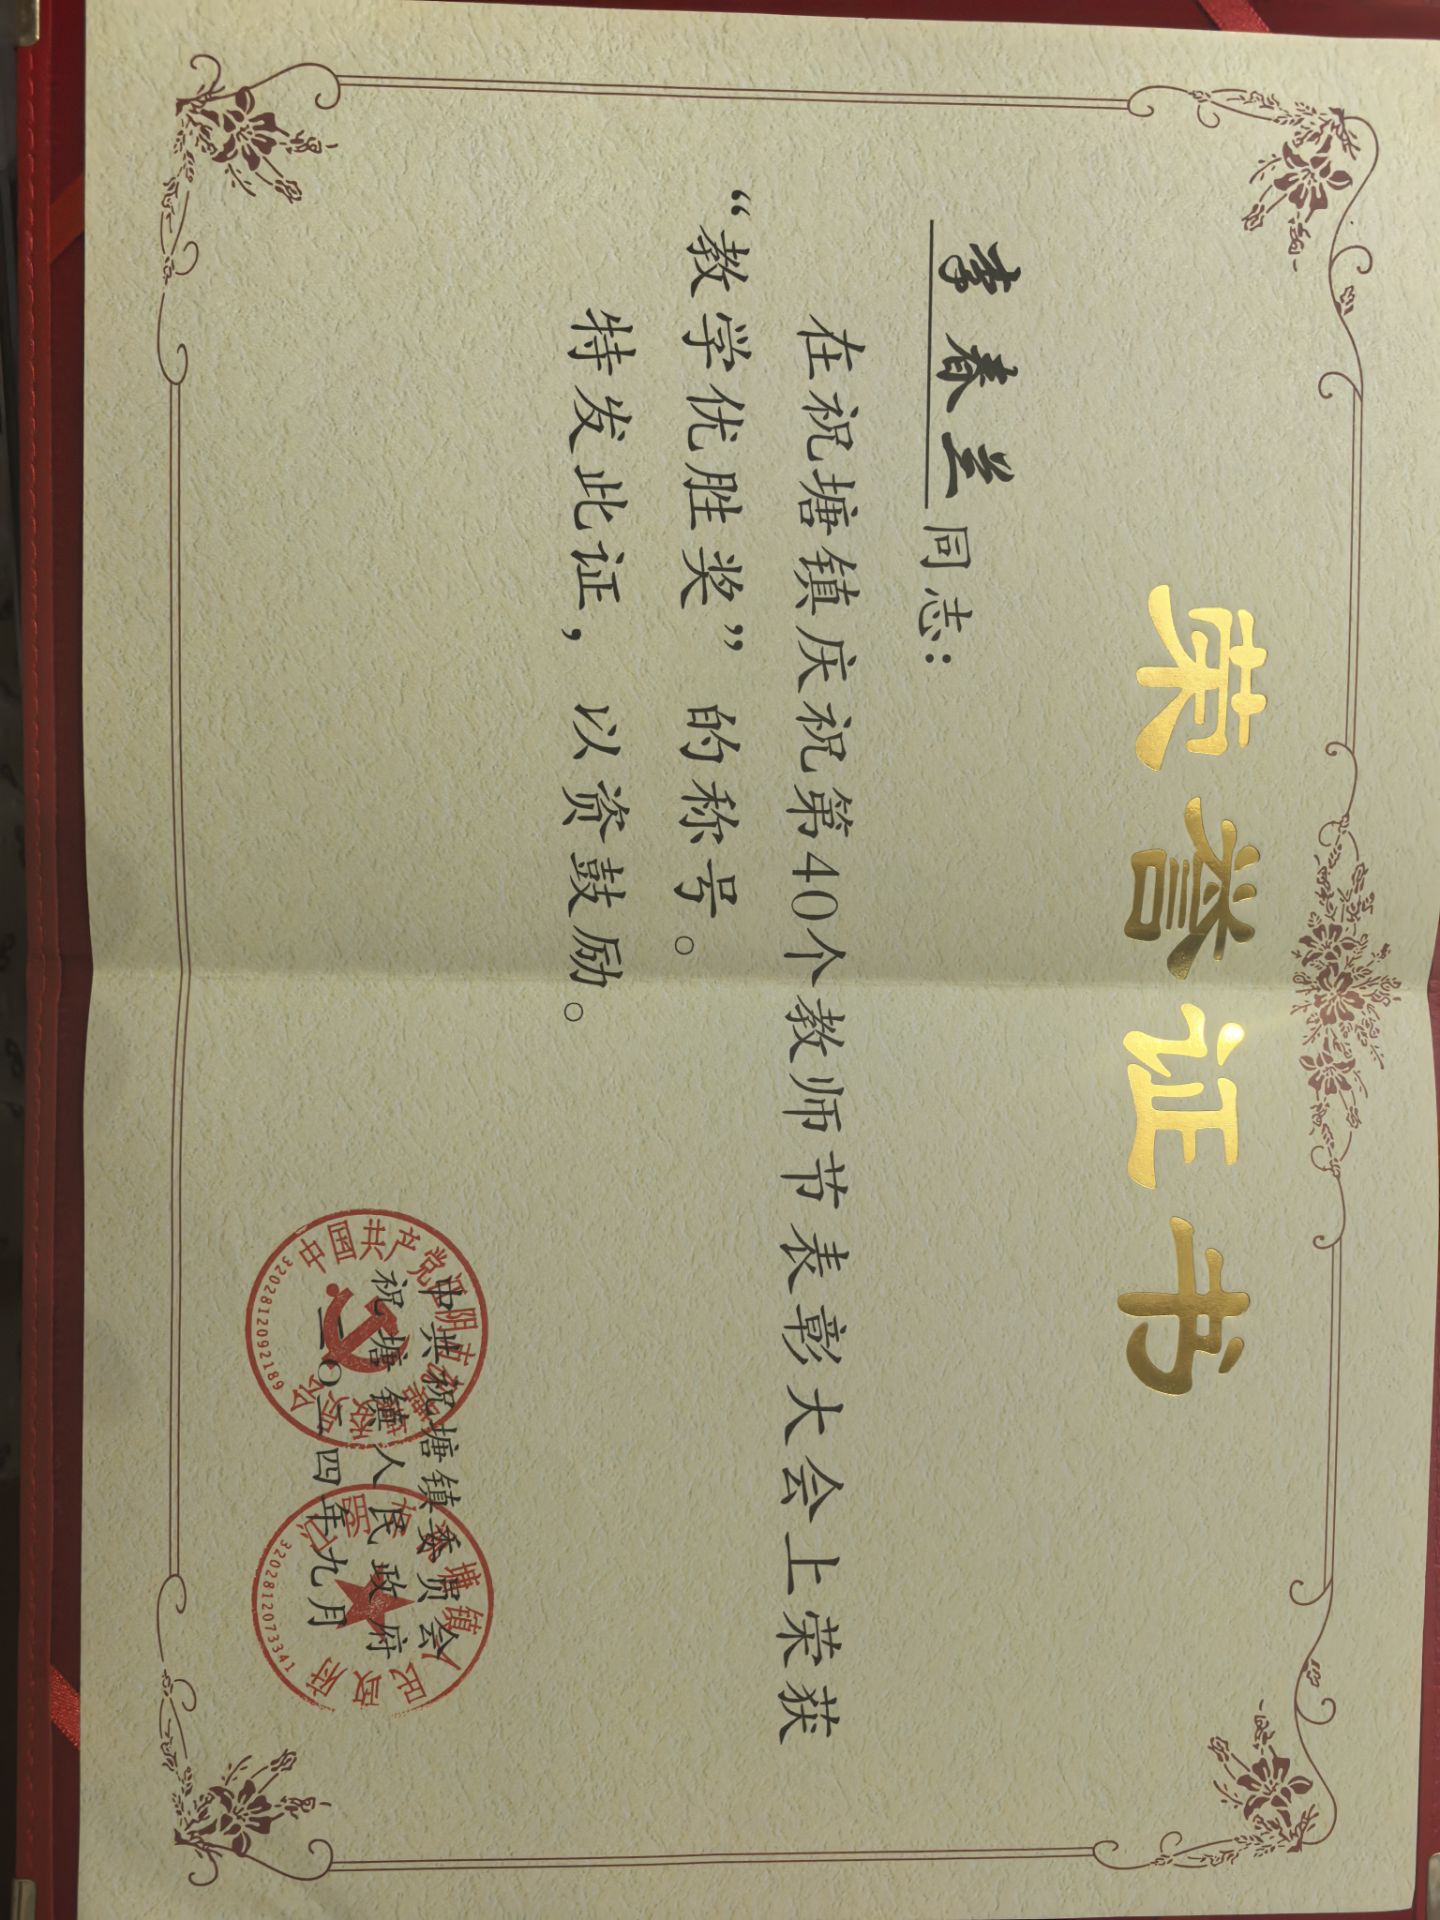 荣誉证书
李春兰同志：
在祝塘镇庆祝第40个教师节表彰大会上荣获
“教学优胜奖”的称号。
特发此证，以资鼓励。
中共祝塘镇委员会
祝塘镇人民政府
二〇二四年九月
中国共产党江阴市祝塘镇委员会
3202812092189
江阴市祝塘镇人民政府
3202812073341